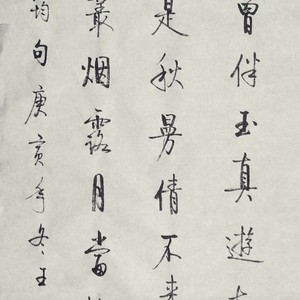 曾伴玉真遊
是秋曼倩不来
叢烟露月當
筠句庚寅年冬王